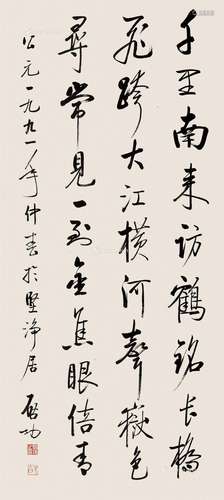 千里南来访鹤铭长桥
飞跨大江横河声岳色
寻常见一到金焦眼倍青
公元一九九一年仲春於坚净居 启功